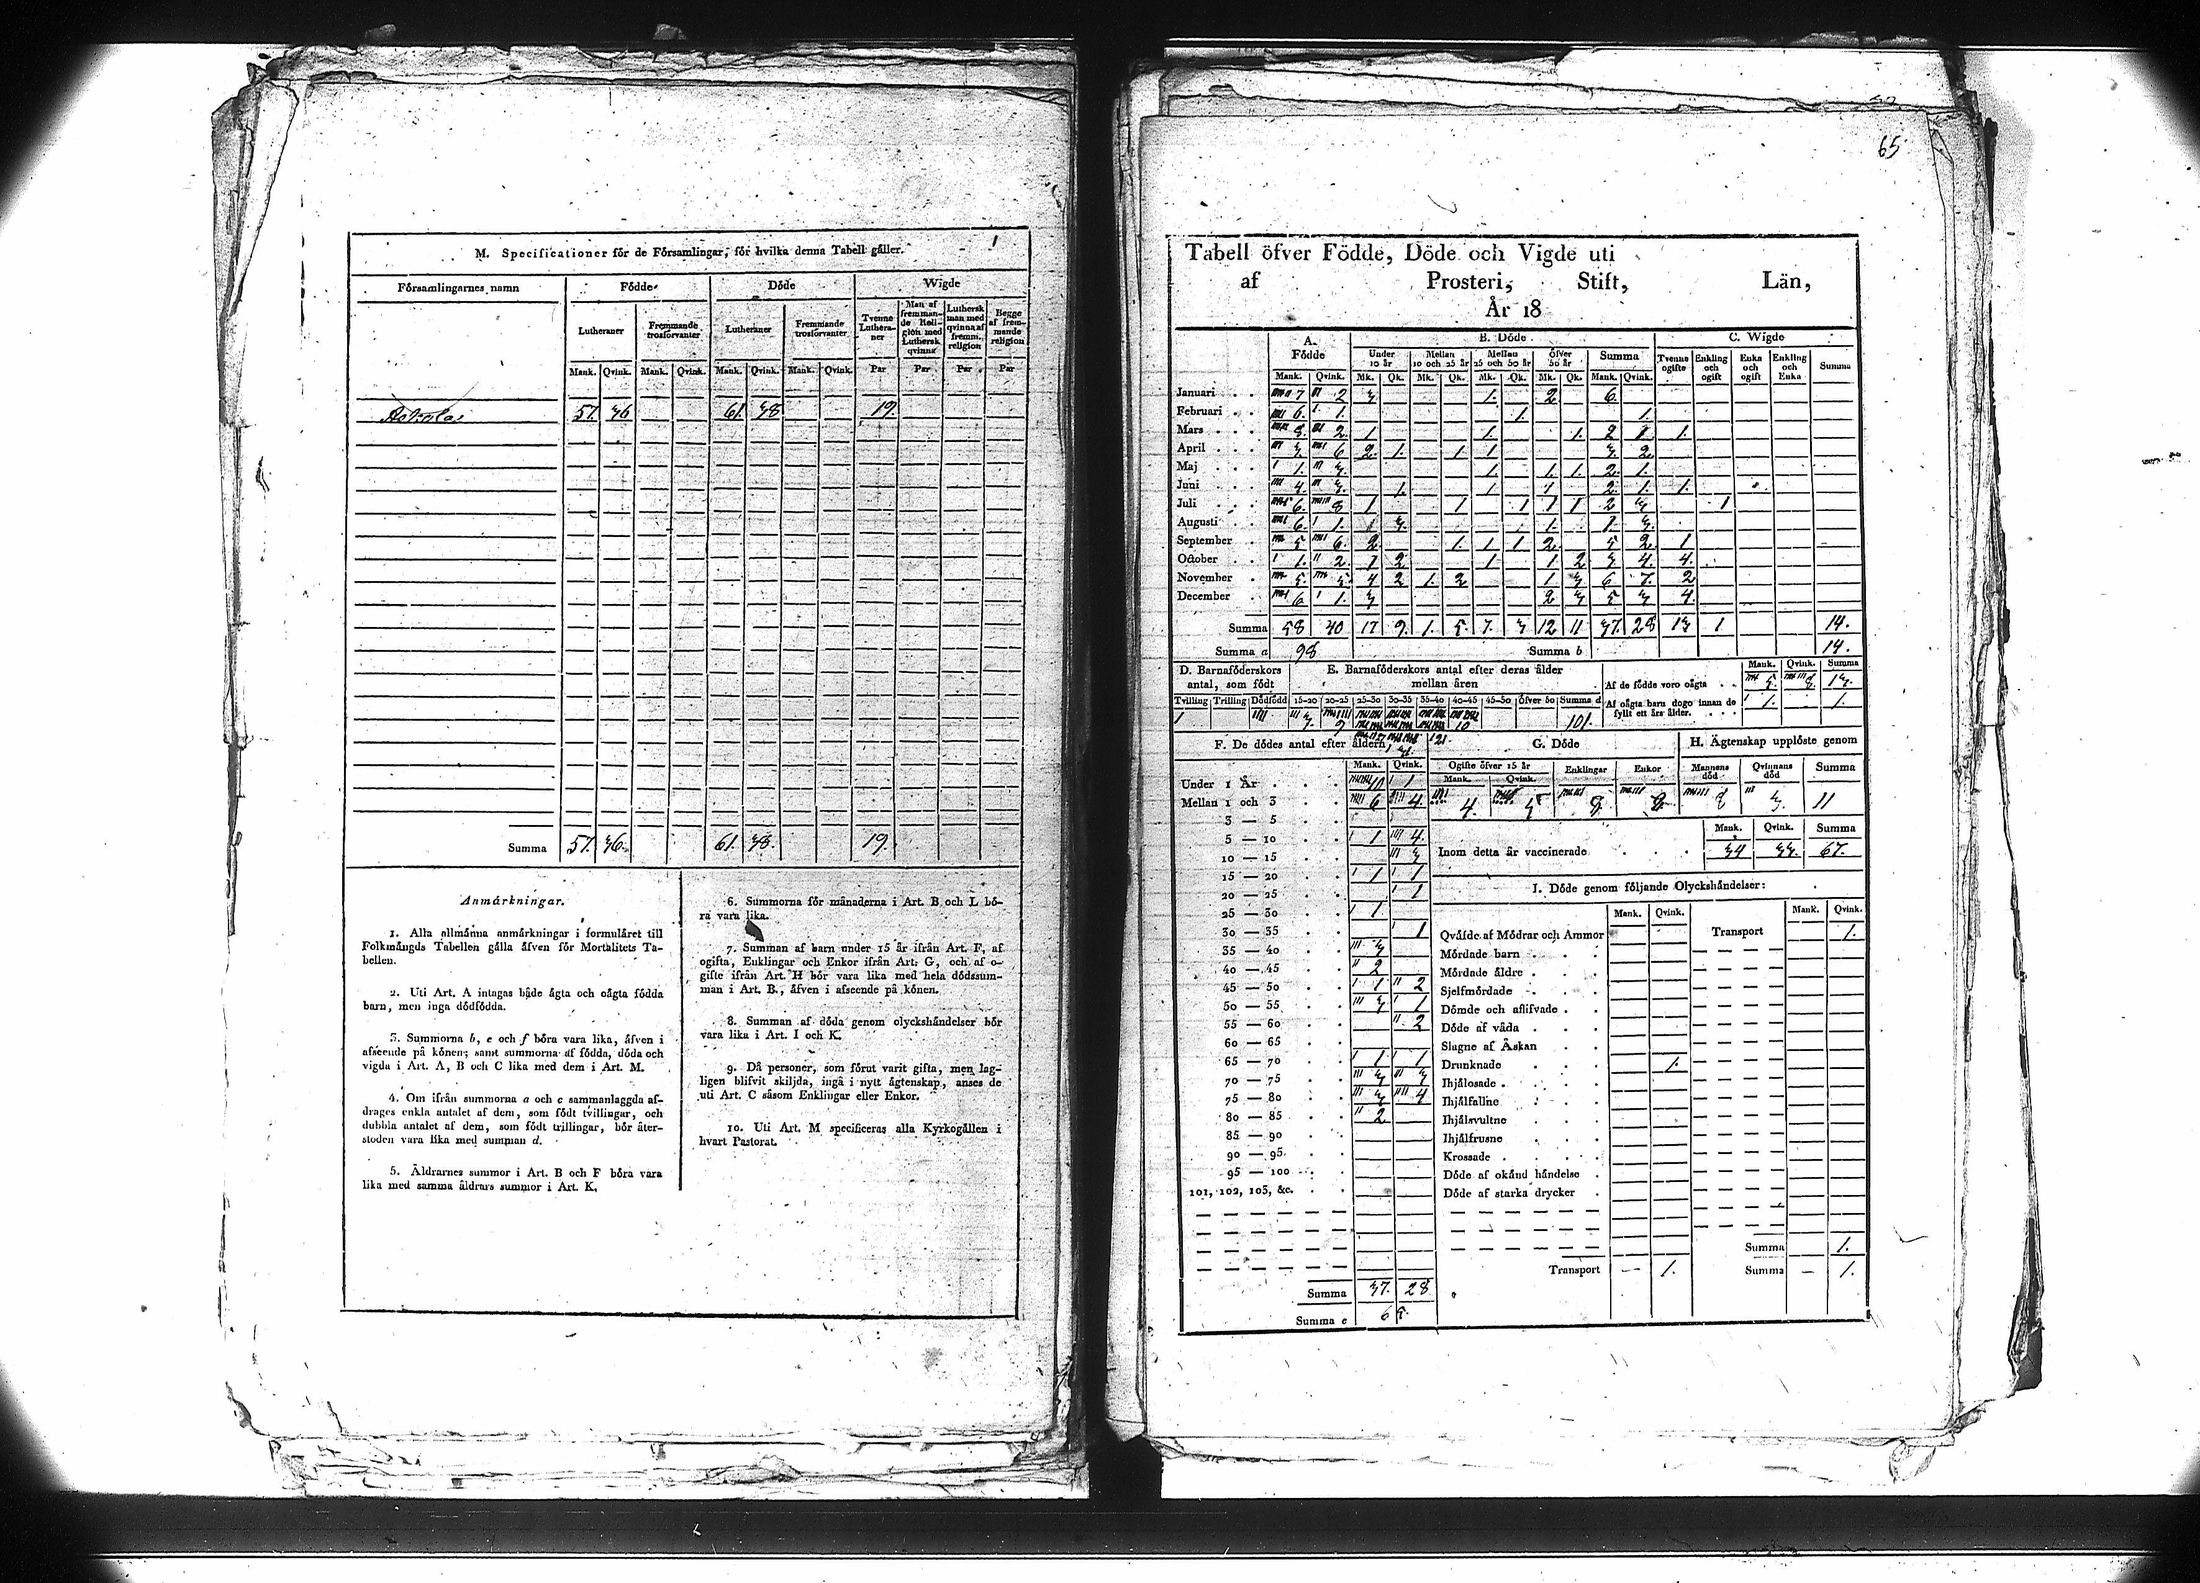 65
M. Specificationer för de Församlingar, för hvilka denna Tabell gäller.
Församlingarnes namn | Födde | Döde | Wigde
Lutheraner | Fremmande trosförvanter | Lutheraner | Fremmande trosförvanter | Tvenne Lutheraner | Man af fremmande Religion med Luthersk qvinna | Luthersk man med qvinna af fremm. religion | Begge af fremmande religion
Mank. Qvink. Mank. Qvink. Mank. Qvink. Mank. Qvink. Par Par Par Par
Askola 51. 36 61. 38 19.
Summa 51. 36. 61. 38. 19.
Anmärkningar.
1. Alla allmänna anmärkningar i formuläret till
Folkmängds Tabellen gälla äfven för Mortalitets Ta-
bellen.
2. Uti Art. A intagas både ägta och oägta födda
barn, men inga dödfödda.
3. Summorna b, e och f böra vara lika, äfven i
afseende på könen; samt summorna af födda, döda och
vigda i Art. A, B och C lika med dem i Art. M.
4. Om ifrån summorna a och c sammanlaggda af-
drages enkla antalet af dem, som födt tvillingar, och
dubbla antalet af dem, som födt trillingar, bör åter-
stoden vara lika med summan d.
5. Åldrarnes summor i Art. B och F böra vara
lika med samma åldrars summor i Art. K.
6. Summorna för månaderna i Art. B och L bö-
ra vara lika.
7. Summan af barn under 15 år ifrån Art. F, af
ogifta, Enklingar och Enkor ifrån Art. G, och af o-
gifte ifrån Art. H bör vara lika med hela dödssum-
man i Art. B., äfven i afseende på könen.
8. Summan af döda genom olyckshändelser bör
vara lika i Art. I och K.
9. Då personer, som förut varit gifta, men lag-
ligen blifvit skiljda, ingå i nytt ägtenskap, anses de
uti Art. C såsom Enklingar eller Enkor.
10. Uti Art. M specificeras alla Kyrkogällen i
hvart Pastorat.
Tabell öfver Födde, Döde och Vigde uti
af Prosteri, Stift, Län,
År 18
A. Födde | B. Döde | C. Wigde
Under 10 år | Mellan 10 och 25 år | Mellan 25 och 50 år | Öfver 50 år | Summa | Tvenne ogifte | Enkling och ogift | Enka och ogift | Enkling och Enka | Summa
Mank. Qvink. Mk. Qk. Mk. Qk. Mk. Qk. Mk. Qk. Mank. Qvink.
Januari 7 2 3 1. 2 6.
Februari 6. 1. 1. 1.
Mars 8. 2. 1 1. 1. 2 1 1.
April 3 6 2. 1. 1. 1 3. 2
Maj 1. 3. 1 1. 1. 2. 1.
Juni 4. 3. 1. 1 1 2. 1. 1.
Juli 6. 8 1 1 1 1 1 2 3 1
Augusti 6. 1. 1 3. 1. 1. 3.
September 5 6. 2 1. 1 1 2. 5 2. 1
October 1. 2. 1 2 1 1 2 3 4. 4.
November 5. 5 4 2 1. 2 1. 3 6 7. 2
December 6 1. 3 2 3 5 3 4.
Summa 58 40 17 9. 1. 5. 7. 3 12 11 37. 28 13 1 14.
Summa a 98 Summa b 14.
D. Barnaföderskors antal, som födt | E. Barnaföderskors antal efter deras ålder mellan åren | Mank. Qvink. Summa
Af de födde voro oägta 5. 8. 13.
Tvilling Trilling Dödfödd 15-20 20-25 25-30 30-35 35-40 40-45 45-50 Öfver 50 Summa d
Af oägta barn dogo innan de fyllt ett års ålder. 1. 1.
1 3. 9 10 101.
F. De dödes antal efter åldern | G. Döde | H. Ägtenskap upplöste genom
21.
Mank. Qvink. | Ogifte öfver 15 år Mank. Qvink. | Enklingar | Enkor | Mannens död | Qvinnans död | Summa
4. 5 8. 8 8 3. 11
Under 1 År 10 1
Mellan 1 och 3 6 4
3 — 5
5 — 10 1 4.
10 — 15 3
15 — 20 1 1
20 — 25 1
25 — 30 1
30 — 35 1
35 — 40 3
40 — 45 2
45 — 50 1 2
50 — 55 3 1
55 — 60 2
60 — 65
65 — 70 1 1
70 — 75 3 3
75 — 80 3 4
80 — 85 2
85 — 90
90 — 95
95 — 100
101, 102, 103, &c.
Summa 37. 28
Summa e 65.
Mank. Qvink. Summa
Inom detta år vaccinerade 34 33. 67.
I. Döde genom följande Olyckshändelser:
Mank. Qvink. Mank. Qvink.
Qväfde af Mödrar och Ammor | Transport 1.
Mördade barn
Mördade äldre
Sjelfmördade
Dömde och aflifvade
Döde af våda
Slagne af Åskan
Drunknade 1.
Ihjälosade
Ihjälfallne
Ihjälsvultne
Ihjälfrusne
Krossade
Döde af okänd händelse
Döde af starka drycker
Summa 1.
Transport — 1. Summa — 1.